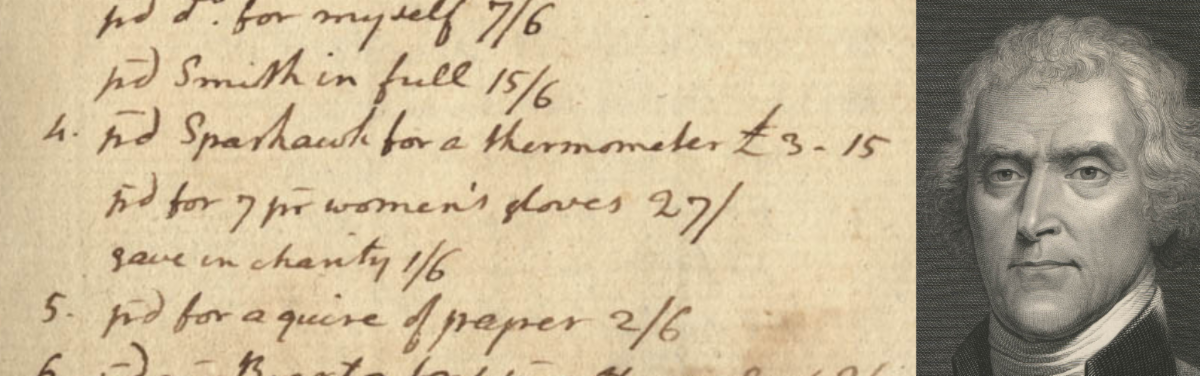 pd do. for myself 7/6
pd Smith in full 15/6
4. pd Sparhawk for a thermometer £3-15
pd for 7 pr women's gloves 27/
gave in charity 1/6
5. pd for a quire of paper 2/6
6.